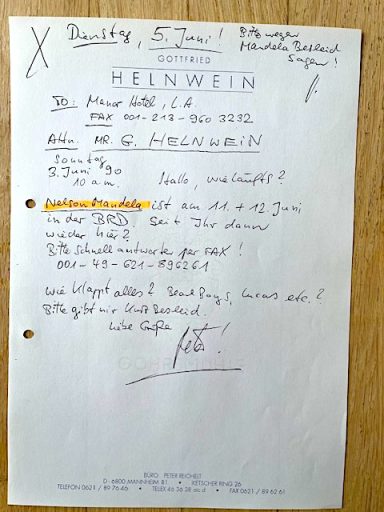 X Dienstag, 5. Juni!
Bitte wegen
Mandela Bescheid
Sagen!
GOTTFRIED
HELNWEIN
TO: Manor Hotel, L.A.
FAX 001-213-960 3232
Attn. MR. G. HELNWEIN
Sonntag
3. Juni 90
10 a.m.
Hallo, wie läufts?
Nelson Mandela ist am 11. + 12. Juni
in der BRD. Seit Ihr dann
wieder hier?
Bitte schnell antworten per FAX!
001-49-621-896261
Wie klappt alles? Beach Boys, Lucas etc.?
Bitte gibt mir kurz Bescheid.
Liebe Grüße
Peter!
BÜRO PETER REICHELT
D-6800 MANNHEIM 81 • KETSCHER RING 26
TELEFON 0621 / 89 76 46 • TELEX 46 36 38 • FAX 0621 / 89 62 61